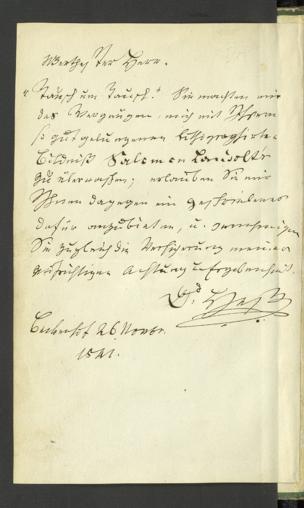 Werthester Herr.
"Tausch um Tausch." Sie machten mir
das Vergnügen, mich mit Ihrem
so gut gelungenen lithographirten
Bildniß Salomon Landolts
zu überraschen; erlauben Sie mir
Ihnen dagegen ein geschriebenes
dafür anzubieten, u. genehmigen
Sie zugleich die Versicherung meiner
aufrichtigen Achtung u Ergebenheit.
Dd. Heß
Beckenhof 26 Novbr.
1841.